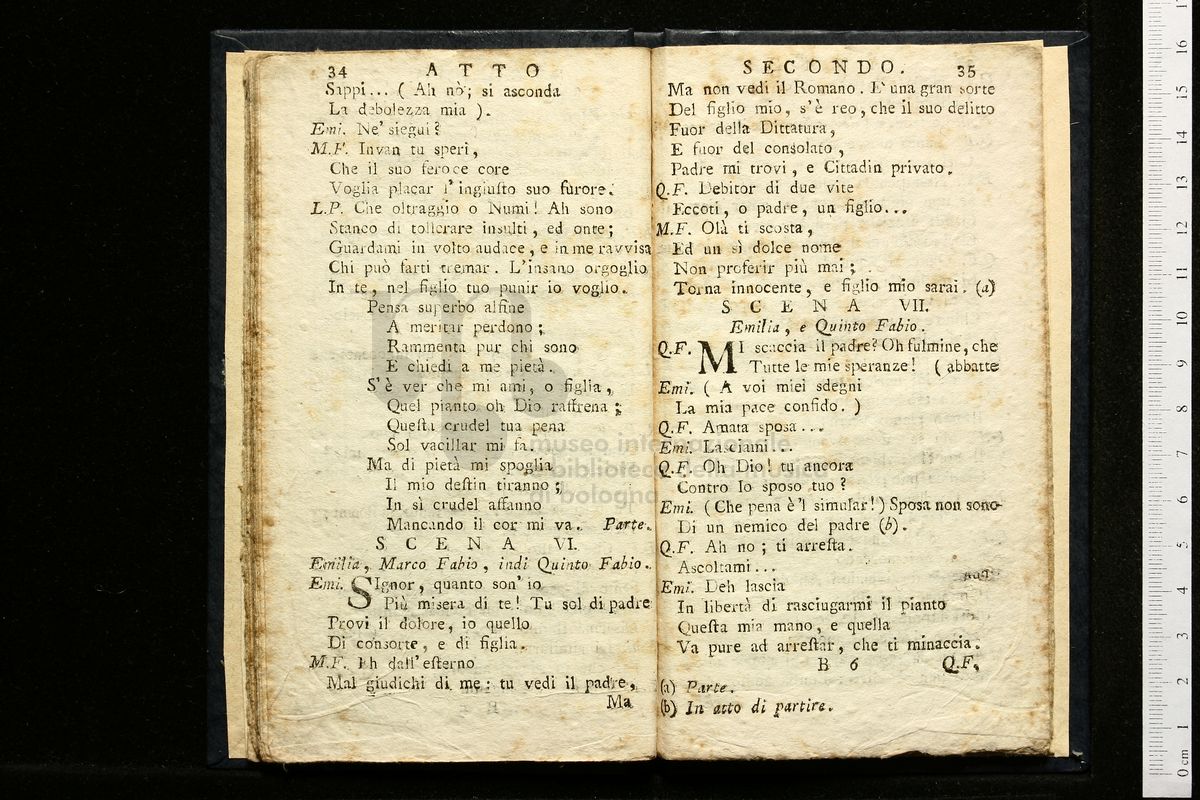 34 ATTO
Sappi... ( Ah nò; si asconda
La debolezza mia ).
Emi. Ne' siegui?
M.F. Invan tu speri,
Che il suo feroce core
Voglia placar l'ingiuſto suo furore.
L.P. Che oltraggio o Numi! Ah sono
Stanco di tollerare insulti, ed onte;
Guardami in volto audace, e in me ravvisa
Chi può farti tremar. L'insano orgoglio
In te, nel figlio tuo punir io voglio.
Pensa superbo alfine
A meritar perdono;
Rammenta pur chi sono
E chiedi a me pietà.
S'è ver che mi ami, o figlia,
Quel pianto oh Dio raffrena;
Queſta crudel tua pena
Sol vacillar mi fa.
Ma di pietà mi spoglia
Il mio deſtin tiranno;
In sì crudel affanno
Mancando il cor mi va. Parte.
SCENA VI.
Emilia, Marco Fabio, indi Quinto Fabio.
Emi. SIgnor, quanto son' io
Più misera di te! Tu sol di padre
Provi il dolore, io quello
Di consorte, e di figlia.
M.F. Eh dall' eſterno
Mal giudichi di me: tu vedi il padre,
Ma
SECONDO. 35
Ma non vedi il Romano. E' una gran sorte
Del figlio mio, s'è reo, che il suo delitto
Fuor della Dittatura,
E fuor del consolato,
Padre mi trovi, e Cittadin privato.
Q.F. Debitor di due vite
Eccoti, o padre, un figlio...
M.F. Olà ti scosta,
Ed un sì dolce nome
Non proferir più mai;
Torna innocente, e figlio mio sarai. (a)
SCENA VII.
Emilia, e Quinto Fabio.
Q.F. MI scaccia il padre? Oh fulmine, che
Tutte le mie speranze! ( abbatte
Emi. ( A voi miei sdegni
La mia pace confido. )
Q.F. Amata sposa...
Emi. Lasciami...
Q.F. Oh Dio! tu ancora
Contro lo sposo tuo?
Emi. (Che pena è'l simular!) Sposa non sono
Di un nemico del padre (b).
Q.F. Ah no; ti arreſta.
Ascoltami...
Emi. Deh lascia
In libertà di rasciugarmi il pianto
Queſta mia mano, e quella
Va pure ad arreſtar, che ti minaccia.
B 6 Q.F.
(a) Parte.
(b) In atto di partire.
museo internazionale
e biblioteca della musica
di bologna
0 cm 1 2 3 4 5 6 7 8 9 10 11 12 13 14 15 16 17